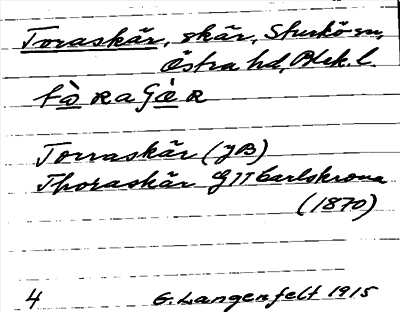 Toraskär, skär, Sturkö sn,
Östra hd, Blek. l.
Torraskär (JB)
Thoraskär GII Carlskrona
(1870)
4 G. Langenfelt 1915